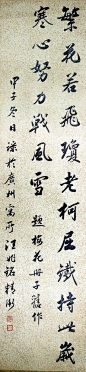 繁花若飛瓊老柯屈鐵持此歲
寒心努力戰風雪 題梅花冊子舊作
甲子冬日錄於廣州寓所汪兆銘精衛